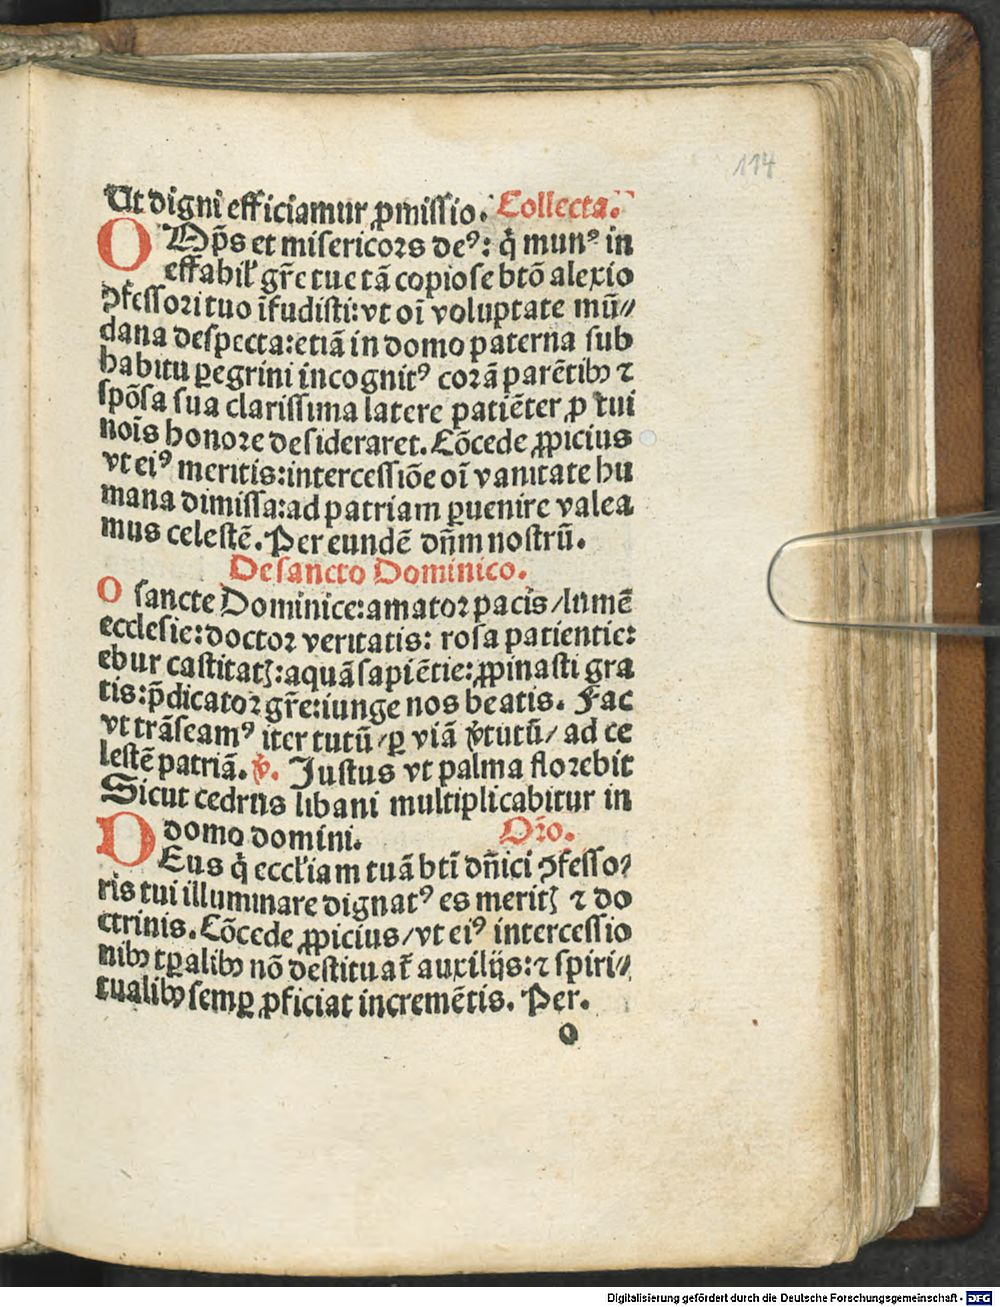 114
Ut digni efficiamur ꝓmissio. Collecta.
OMp̄s et misericors deꝰ: q̇ munꝰ in
effabil' gr̄e tue tā copiose btō alexio
ꝯfessori tuo īfudisti: vt oī voluptate mū⸗
dana despecta: etiā in domo paterna sub
habitu ꝑegrini incognitꝰ corā parētibꝫ ⁊
spōsa sua clarissima latere patiēter ꝓ tui
nois̄ honore desideraret. Cōcede ꝓpicius
vt eiꝰ meritis: intercessiōe oī vanitate hu
mana dimissa: ad patriam ꝑuenire valea
mus celestē. Per eundē dn̄m nostrū.
De sancto Dominico.
O sancte Dominice: amator pacis/ lumē
ecclesie: doctor veritatis: rosa patientie:
ebur castitatꝭ: aquā sapiētie: ꝓpinasti gra
tis: p̄dicator gr̄e: iunge nos beatis. Fac
vt trāseamꝰ iter tutū/ ꝑ viā v̓tutū/ ad ce
lestē patriā. ℣. Justus vt palma florebit
Sicut cedrus libani multiplicabitur in
domo domini. Or̄o.
DEus q̇ eccl'iam tuā btī dn̄ici ꝯfesso⸗
ris tui illuminare dignatꝰ es meritꝭ ⁊ do
ctrinis. Cōcede ꝓpicius/ vt eiꝰ intercessio
nibꝫ tꝑalibꝫ nō destituat̄ auxilijs: ⁊ spiri⸗
tualibꝫ semꝑ ꝓficiat incremētis. Per.
o
Digitalisierung gefördert durch die Deutsche Forschungsgemeinschaft - DFG